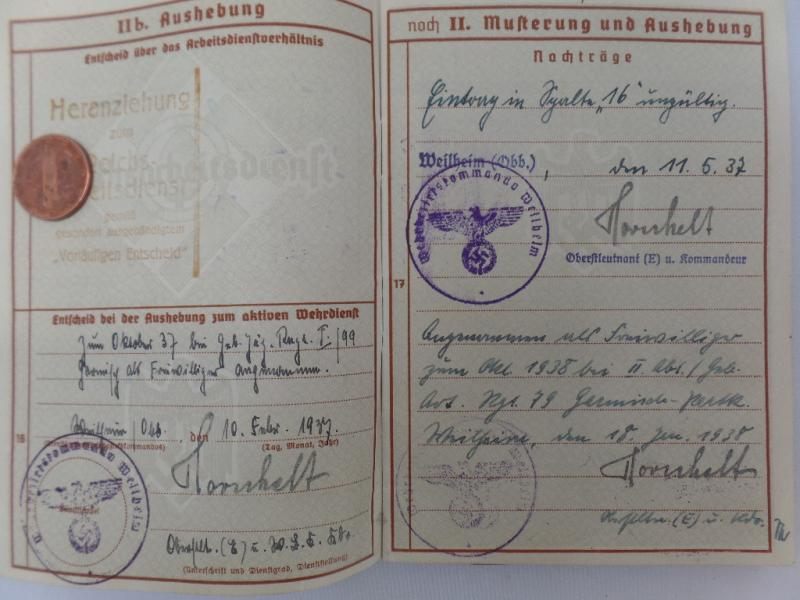 IIb. Aushebung
Entscheid über das Arbeitsdienstverhältnis
Heranziehung
zum
Reichs-
arbeitsdienst
gemäß
gesondert ausgehändigtem
„Vorläufigen Entscheid"
Entscheid bei der Aushebung zum aktiven Wehrdienst
Zum Oktober 37 bei Geb. Jäg. Regt. I./99
Garmisch als Freiwilliger angenommen.
16
den 10. Febr. 1937
(Tag, Monat, Jahr)
Hornhelt
Oberstlt. (E) u.
(Unterschrift und Dienstgrad, Dienststellung)
noch II. Musterung und Aushebung
Nachträge
Eintrag in Spalte „16" ungültig.
Weilheim (Obb.), den 11.5.37
Wehrbezirkskommando Weilheim
Hornhelt
Oberstleutnant (E) u. Kommandeur
17
Angenommen als Freiwilliger
zum Okt. 1938 bei II. Abt./Geb.
Art. Rgt. 79 Garmisch-Partk.
Weilheim, den 18. Jan. 1938
Hornhelt
(E) u. Kdr.